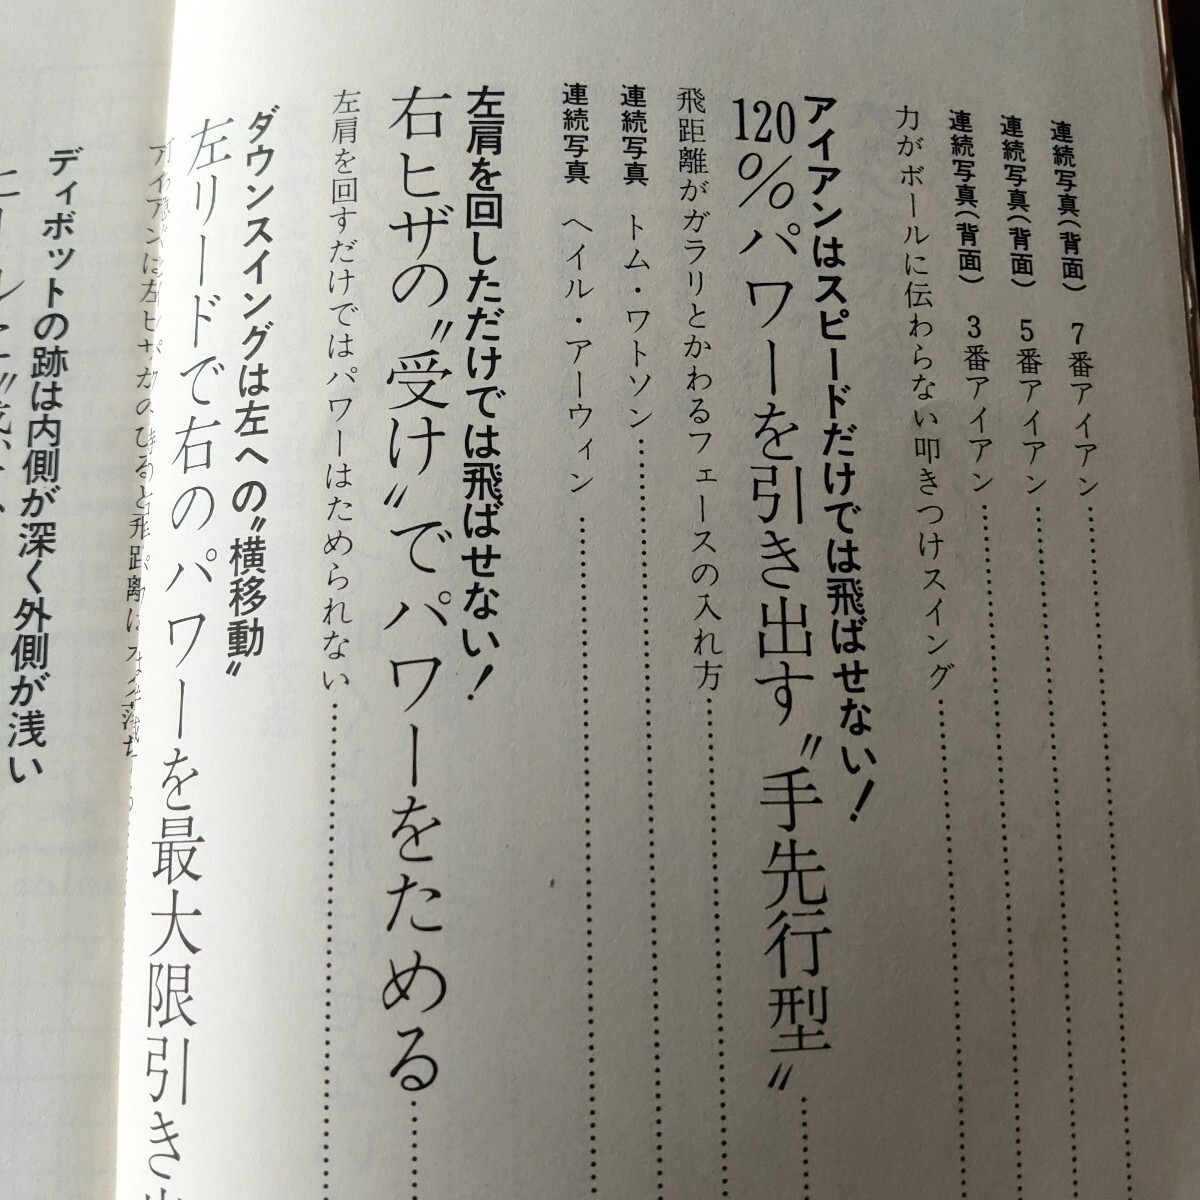 連続写真(背面) 7番アイアン
連続写真(背面) 5番アイアン
連続写真(背面) 3番アイアン
力がボールに伝わらない叩きつけスイング
アイアンはスピードだけでは飛ばせない!
120%パワーを引き出す〝手先行型〟
飛距離がガラリとかわるフェースの入れ方
連続写真 トム・ワトソン
連続写真 ヘイル・アーウィン
左肩を回しただけでは飛ばせない!
右ヒザの〝受け〟でパワーをためる
左肩を回すだけではパワーはためられない
ダウンスイングは左への〝横移動〟
左リードで右のパワーを最大限引き
アイアンは左ヒ
ディボットの跡は内側が深く外側が浅い